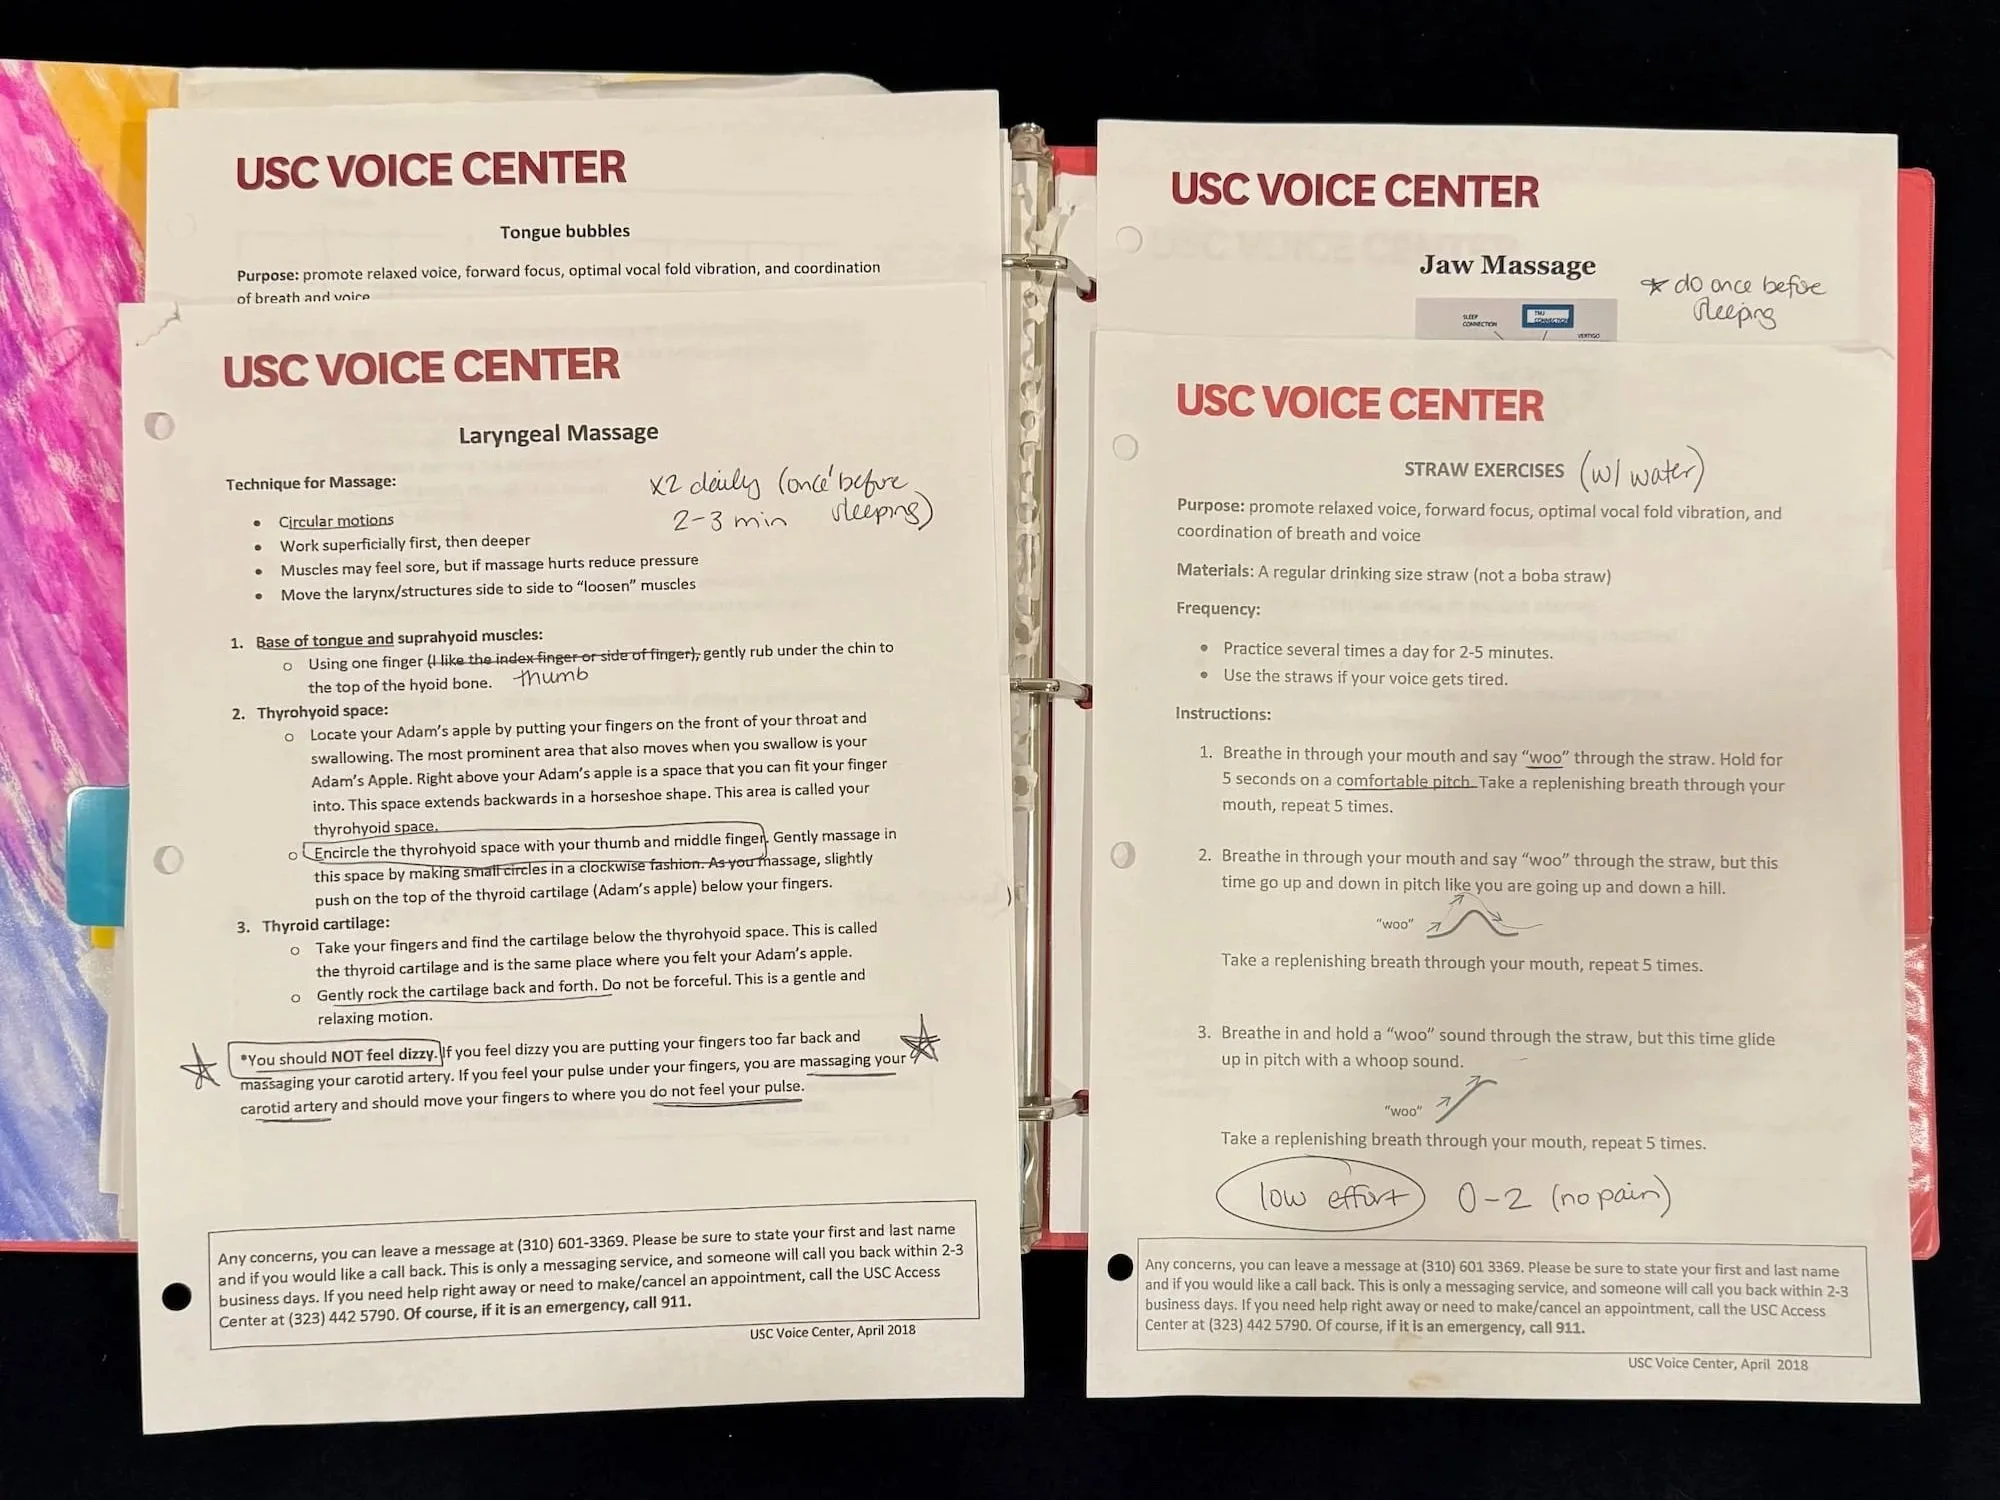 USC VOICE CENTER
Tongue bubbles
Purpose: promote relaxed voice, forward focus, optimal vocal fold vibration, and coordination
of breath and voice
USC VOICE CENTER
Laryngeal Massage
Technique for Massage:
x2 daily (once before
sleeping)
2-3 min
• Circular motions
• Work superficially first, then deeper
• Muscles may feel sore, but if massage hurts reduce pressure
• Move the larynx/structures side to side to “loosen” muscles
1. Base of tongue and suprahyoid muscles:
o Using one finger (I like the index finger or side of finger), gently rub under the chin to
the top of the hyoid bone. thumb
2. Thyrohyoid space:
o Locate your Adam’s apple by putting your fingers on the front of your throat and
swallowing. The most prominent area that also moves when you swallow is your
Adam’s Apple. Right above your Adam’s apple is a space that you can fit your finger
into. This space extends backwards in a horseshoe shape. This area is called your
thyrohyoid space.
o Encircle the thyrohyoid space with your thumb and middle finger. Gently massage in
this space by making small circles in a clockwise fashion. As you massage, slightly
push on the top of the thyroid cartilage (Adam’s apple) below your fingers.
3. Thyroid cartilage:
o Take your fingers and find the cartilage below the thyrohyoid space. This is called
the thyroid cartilage and is the same place where you felt your Adam’s apple.
o Gently rock the cartilage back and forth. Do not be forceful. This is a gentle and
relaxing motion.
*You should NOT feel dizzy. If you feel dizzy you are putting your fingers too far back and
massaging your carotid artery. If you feel your pulse under your fingers, you are massaging your
carotid artery and should move your fingers to where you do not feel your pulse.
Any concerns, you can leave a message at (310) 601-3369. Please be sure to state your first and last name
and if you would like a call back. This is only a messaging service, and someone will call you back within 2-3
business days. If you need help right away or need to make/cancel an appointment, call the USC Access
Center at (323) 442 5790. Of course, if it is an emergency, call 911.
USC Voice Center, April 2018
USC VOICE CENTER
Jaw Massage
* do once before
sleeping
SLEEP
CONNECTION
TMJ
CONNECTION
VERTIGO
USC VOICE CENTER
STRAW EXERCISES (w/ water)
Purpose: promote relaxed voice, forward focus, optimal vocal fold vibration, and
coordination of breath and voice
Materials: A regular drinking size straw (not a boba straw)
Frequency:
• Practice several times a day for 2-5 minutes.
• Use the straws if your voice gets tired.
Instructions:
1. Breathe in through your mouth and say “woo” through the straw. Hold for
5 seconds on a comfortable pitch. Take a replenishing breath through your
mouth, repeat 5 times.
2. Breathe in through your mouth and say “woo” through the straw, but this
time go up and down in pitch like you are going up and down a hill.
“woo”
Take a replenishing breath through your mouth, repeat 5 times.
3. Breathe in and hold a “woo” sound through the straw, but this time glide
up in pitch with a whoop sound.
“woo”
Take a replenishing breath through your mouth, repeat 5 times.
low effort 0-2 (no pain)
Any concerns, you can leave a message at (310) 601 3369. Please be sure to state your first and last name
and if you would like a call back. This is only a messaging service, and someone will call you back within 2-3
business days. If you need help right away or need to make/cancel an appointment, call the USC Access
Center at (323) 442 5790. Of course, if it is an emergency, call 911.
USC Voice Center, April 2018